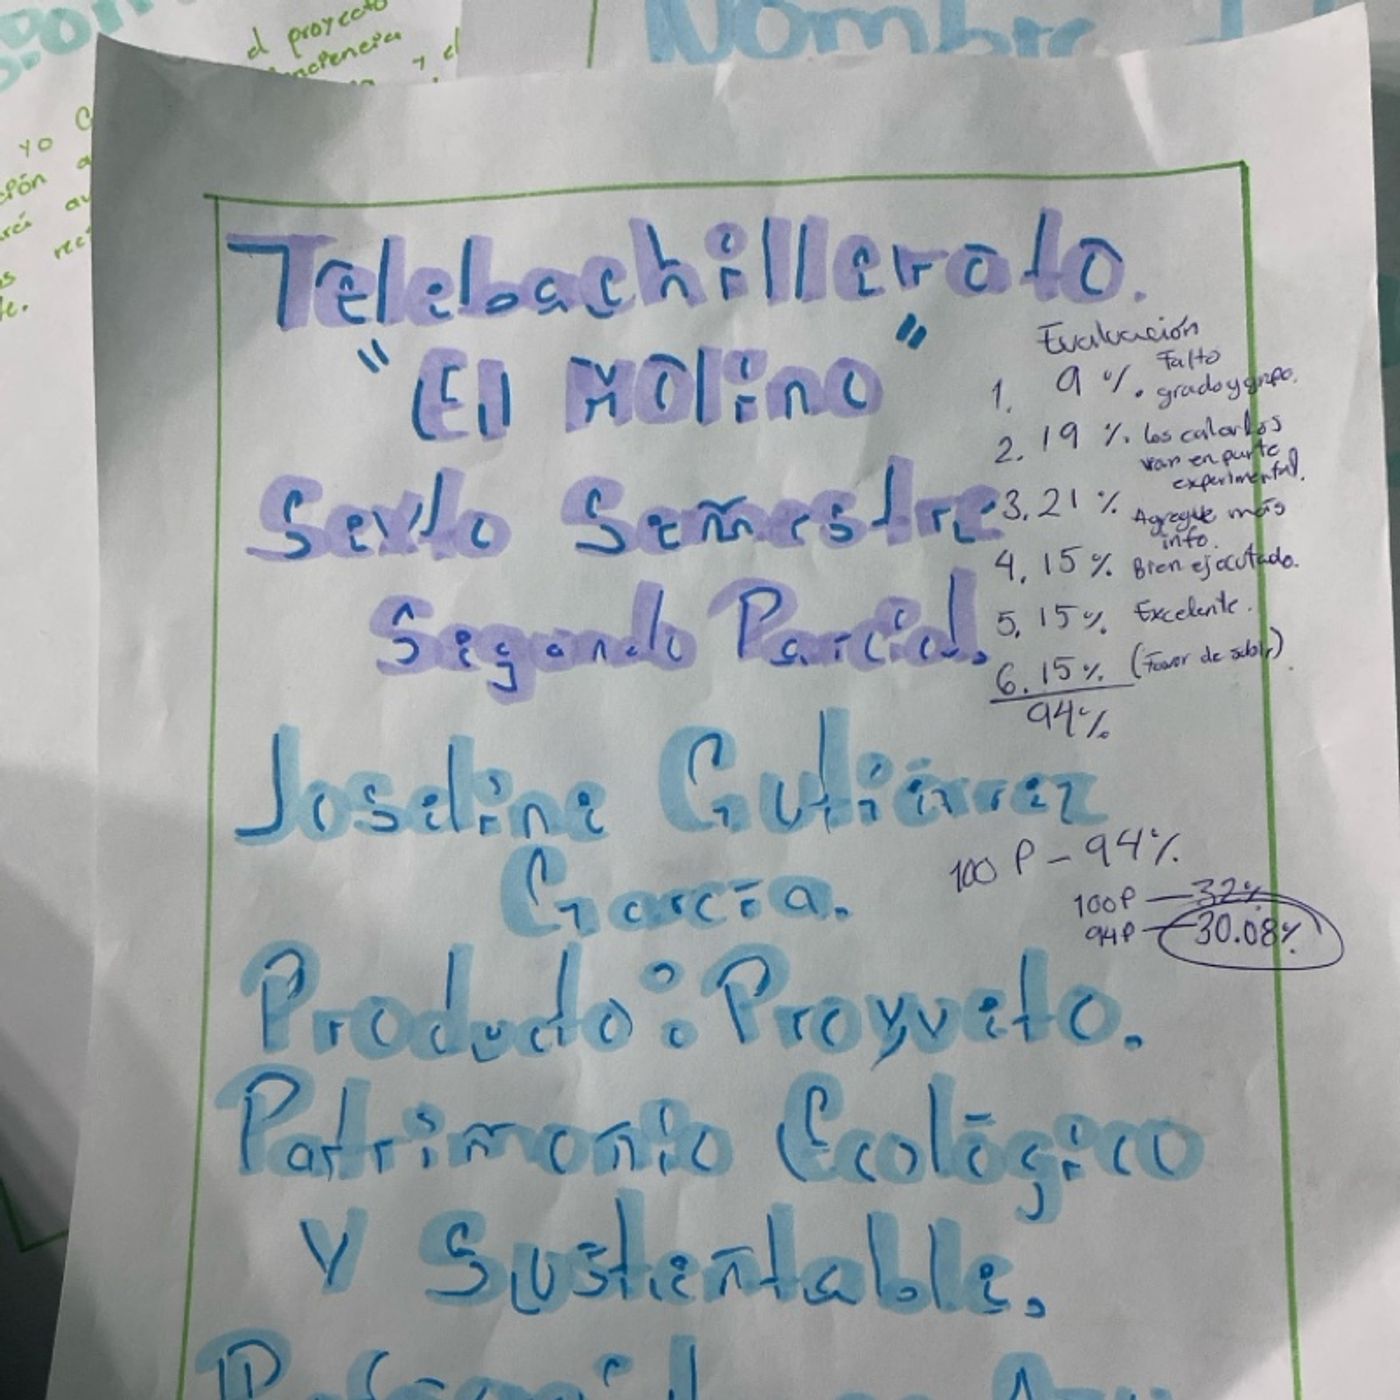 Nombre
el proyecto
y el
yo
Telebachillerato.
"El Molino"
Sexto Semestre
Segundo Parcial.
Evaluación
1. 9 %. Falto
grado y grupo.
2. 19 %. los calculos
van en parte
experimental.
3. 21 % Agregue más
info.
4. 15 %. Bien ejecutado.
5. 15 %. Excelente.
6. 15 %. (Favor de subir)
94%
Joseline Gutiérrez
García.
100 P - 94%
100P — 32%
94P — 30.08%
Producto: Proyyeto.
Patrimonio Ecológico
Y Sustentable.